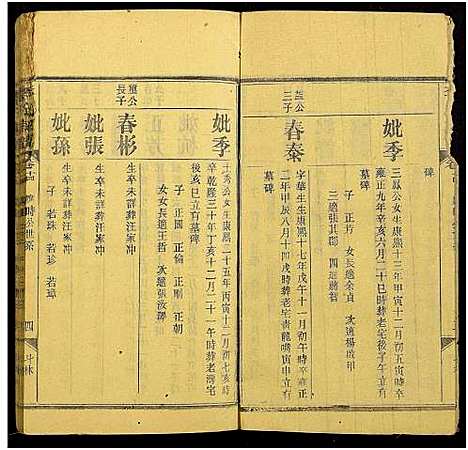 碑
妣季
三鳳公女生康熙十三年甲寅十二月初五寅時卒
雍正九年辛亥六月二十巳時葬老宅後子午向立
墓碑
子 正芳 女長適余貞 次適楊
三適張其 四適
三子
春秦
字華生生康熙十七年戊午十一月初一丑時卒雍正
二年甲辰八月十四戌時葬老宅青龍嘴
墓碑
妣季
公女生康熙二十五年丙寅十二月初七亥時
辛乾隆三十年丁亥十二月二十一午時葬老灣宅
後亥巳立有墓碑
子 正國 正倫 正順 正朝
女長適王哲 次適張汝
公長子
春彬
生卒未詳葬汪家沖
妣張
生卒未詳葬汪家沖
妣孫
子 若珠 若珍 若璋
時公世系
四